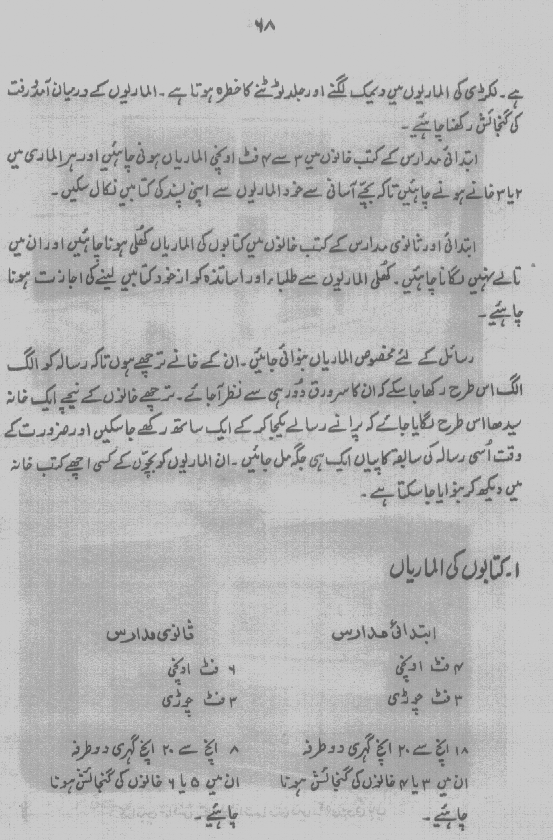 ۶۸
ہے۔ لکڑی کی الماریوں میں دیمک لگنے اور جلد ٹوٹنے کا خطرہ ہوتا ہے۔ الماریوں کے درمیان آمدورفت
کی گنجائش رکھنا چاہیئے۔
ابتدائی مدارس کے کتب خانوں میں ۳ سے ۴ فٹ اونچی الماریاں ہونی چاہئیں اور ہر الماری میں
۲ یا ۳ خانے ہونے چاہئیں تاکہ بچے آسانی سے خود الماریوں سے اپنی پسند کی کتابیں نکال سکیں۔
ابتدائی اور ثانوی مدارس کے کتب خانوں میں کتابوں کی الماریاں کھلی ہونا چاہئیں اور ان میں
تالے نہیں لگانا چاہئیں۔ کھلی الماریوں سے طلباء اور اساتذہ کو از خود کتابیں لینے کی اجازت ہونا
چاہیئے۔
رسائل کے لئے مخصوص الماریاں بنوائی جائیں۔ ان کے خانے ترچھے ہوں تاکہ رسالہ کو الگ
الگ اس طرح رکھا جا سکے کہ ان کا سرورق دُور ہی سے نظر آ جائے۔ ترچھے خانوں کے نیچے ایک خانہ
سیدھا اس طرح لگایا جائے کہ پرانے رسالے یکجا کر کے ایک ساتھ رکھے جا سکیں اور ضرورت کے
وقت اُسی رسالہ کی سابقہ کاپیاں ایک ہی جگہ مل جائیں۔ ان الماریوں کو بچوں کے کسی اچھے کتب خانہ
میں دیکھ کر بنوایا جا سکتا ہے۔
۱۔ کتابوں کی الماریاں
ابتدائی مدارس
۴ فٹ اونچی
۳ فٹ چوڑی
۱۸ انچ سے ۲۰ انچ گہری دو طرفہ
ان میں ۳ یا ۴ خانوں کی گنجائش ہونا
چاہیئے۔
ثانوی مدارس
۶ فٹ اونچی
۳ فٹ چوڑی
۸ انچ سے ۲۰ انچ گہری دو طرفہ
ان میں ۵ یا ۶ خانوں کی گنجائش ہونا
چاہیئے۔